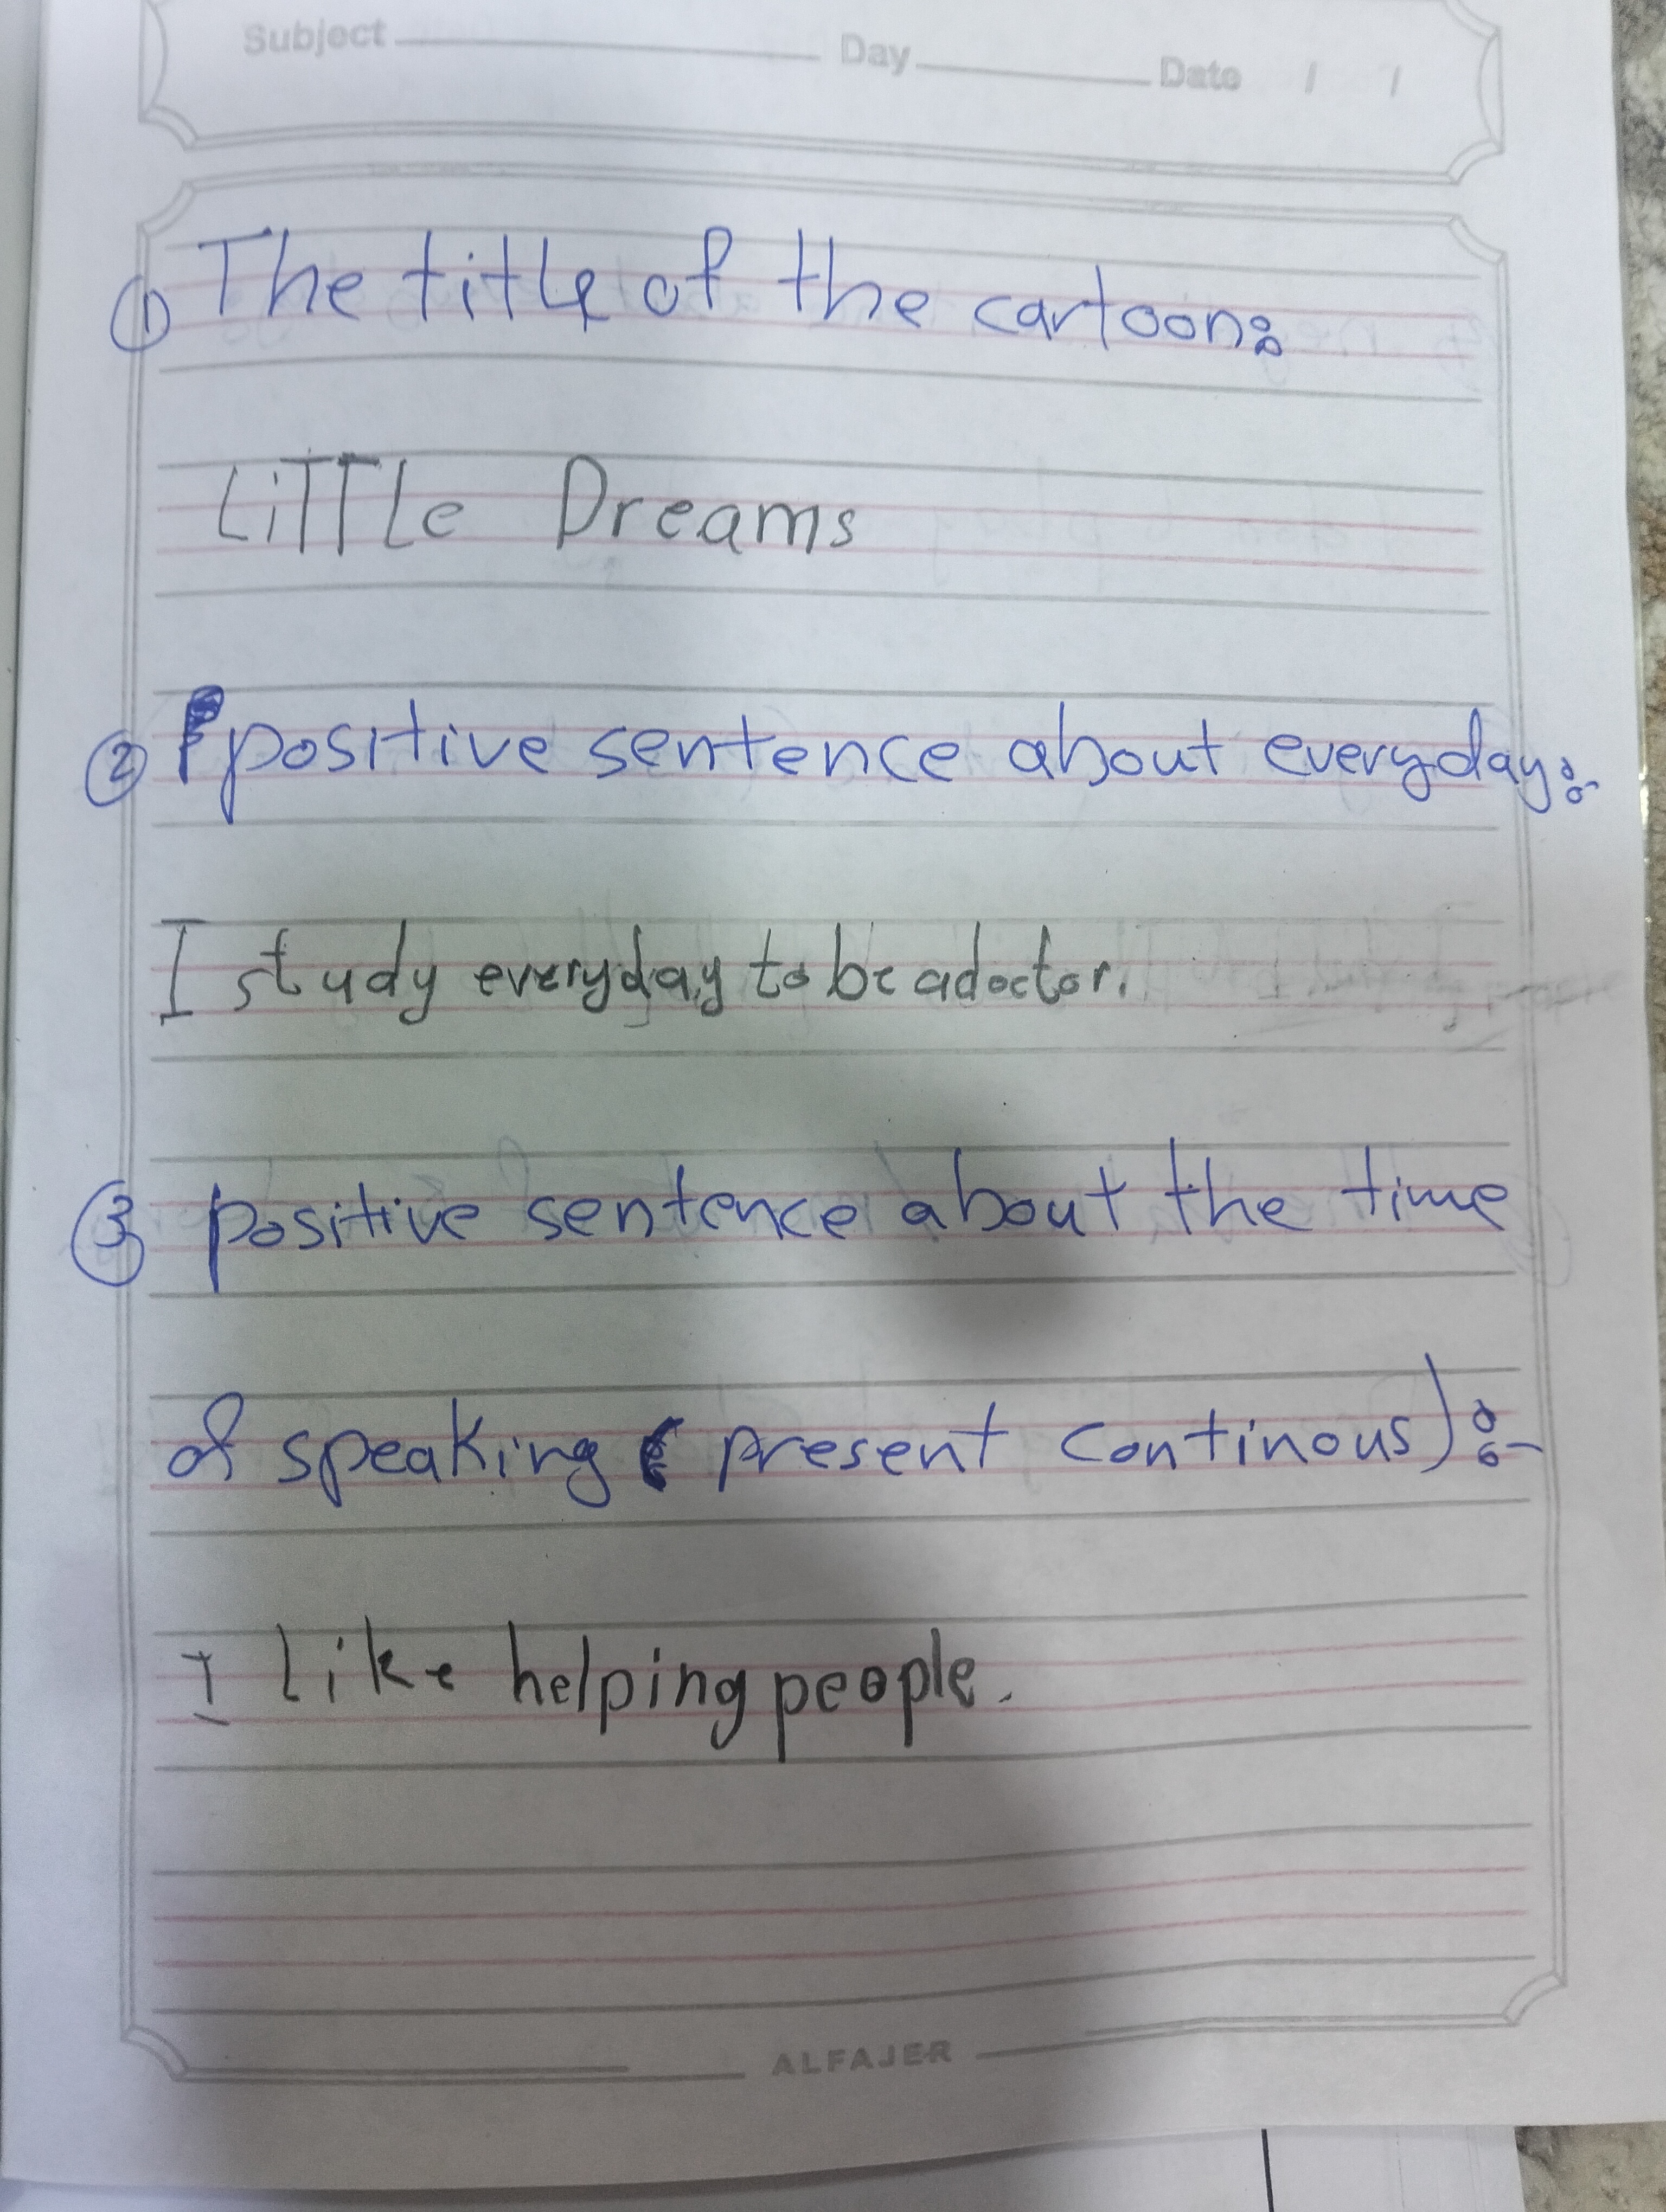 Subject Day Date / /
① The title of the cartoon:
LiTTLe Dreams
② positive sentence about everyday:-
I study everyday to be a doctor.
③ positive sentence about the time
of speaking ( present continous):-
I like helping people.
ALFAJER